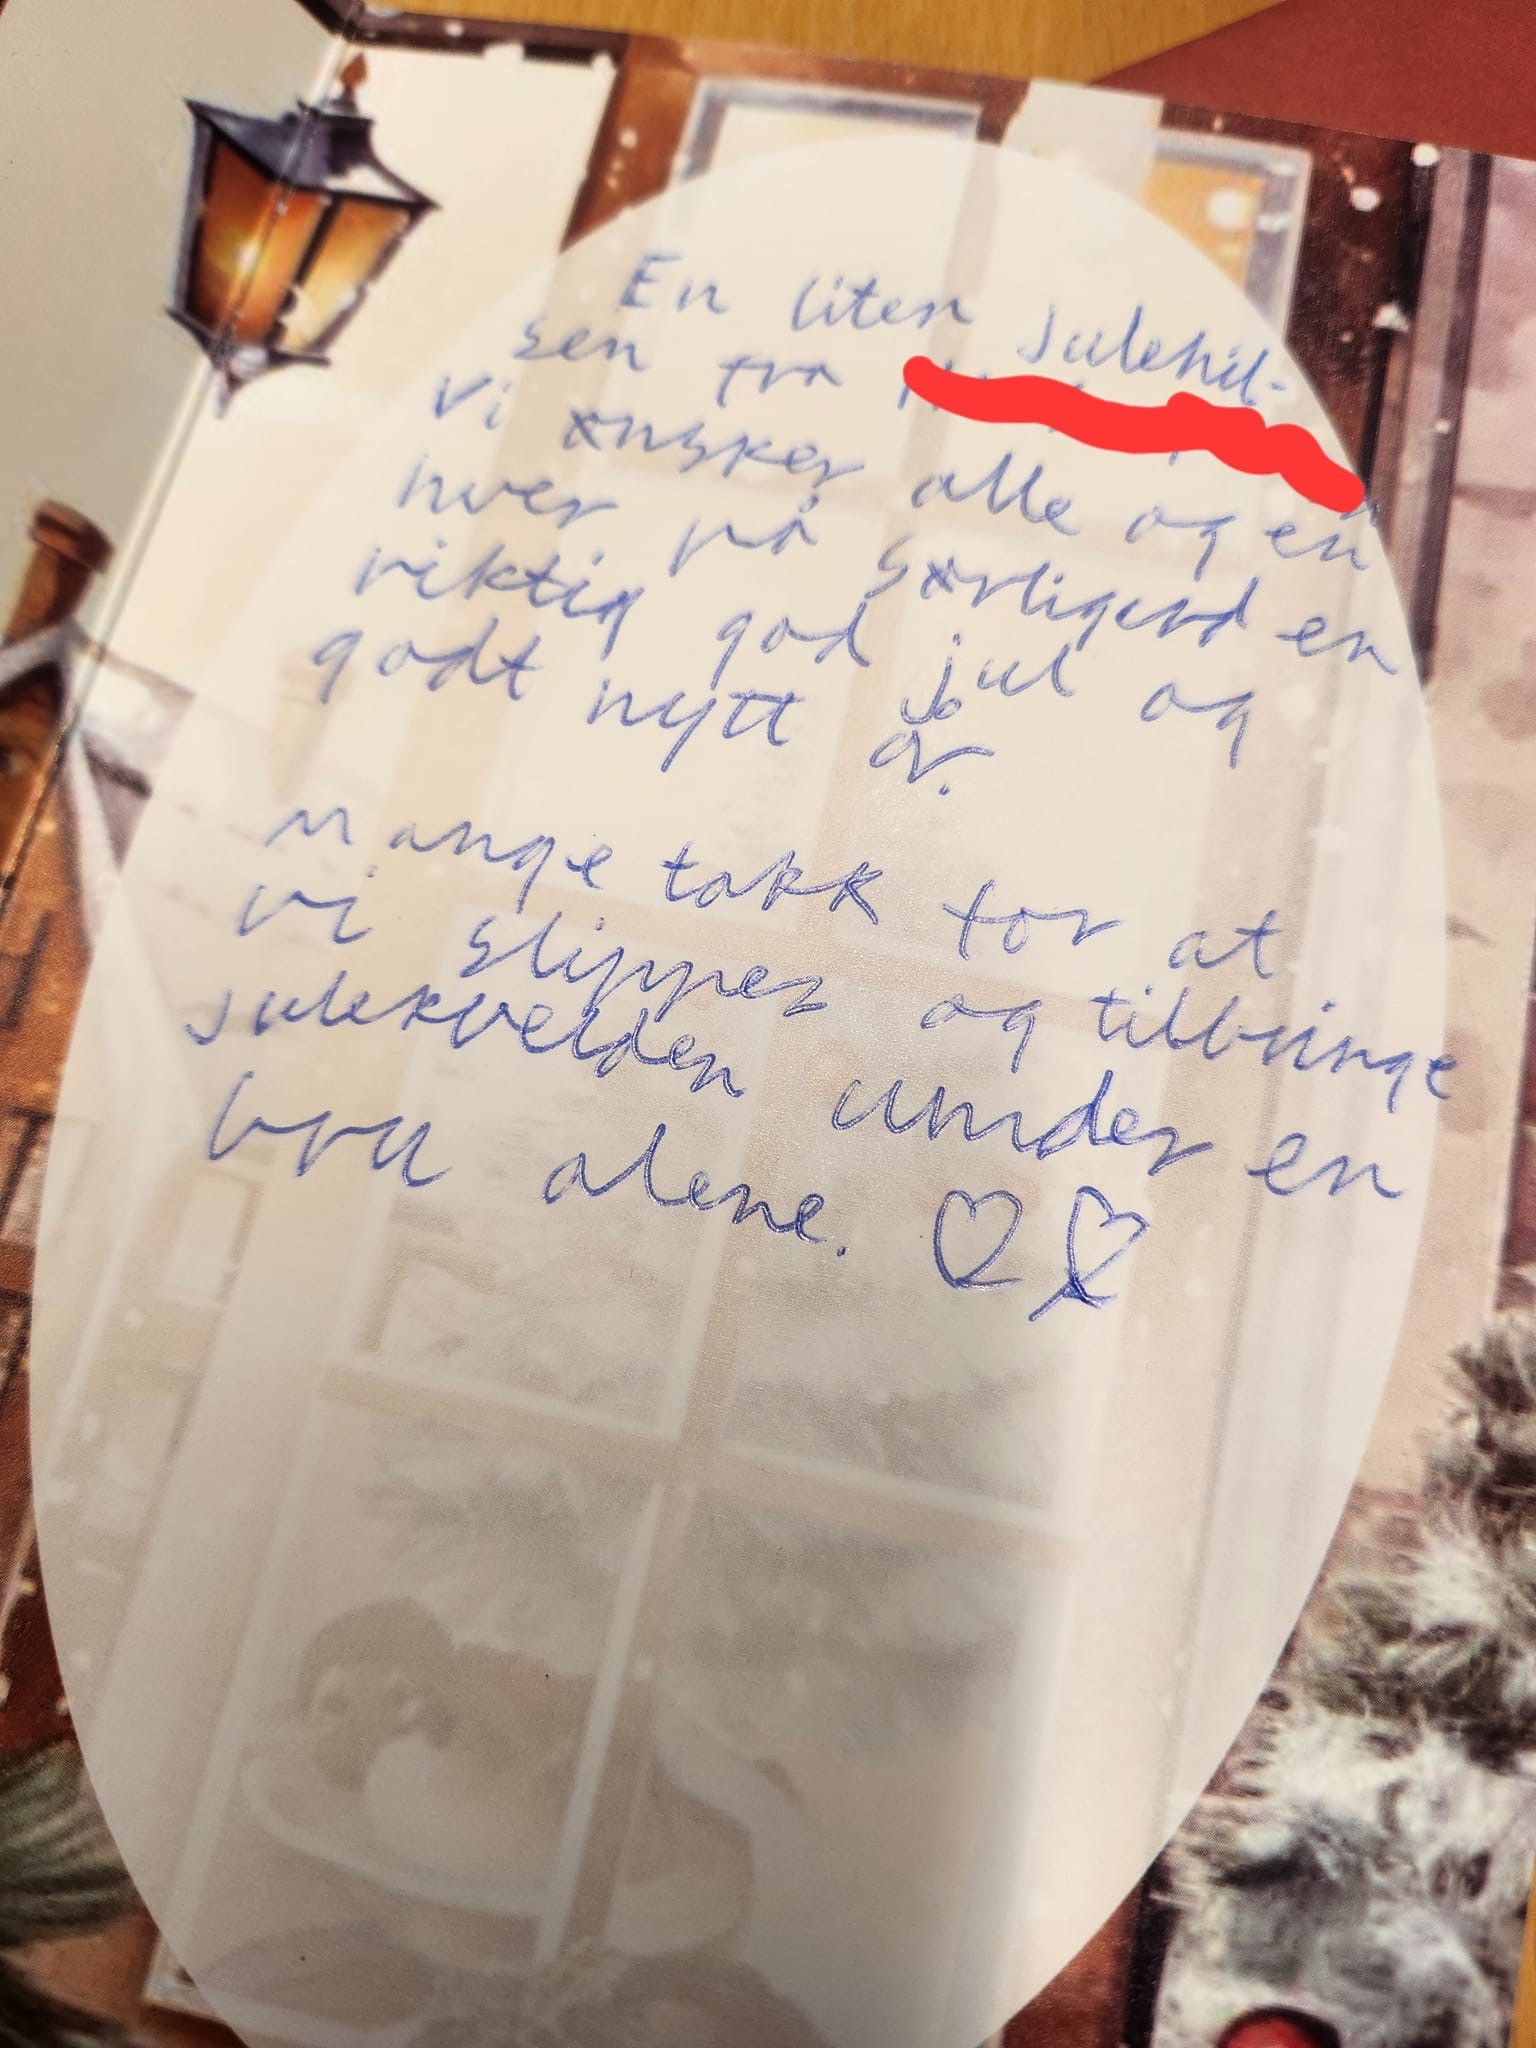 En liten julehil-
sen fra
vi ønsker alle og en
hver på særligend en
riktig god jul og
godt nytt år.
Mange takk for at
vi slipper og tilbringe
julekvelden under en
bru alene. ♡ ♡